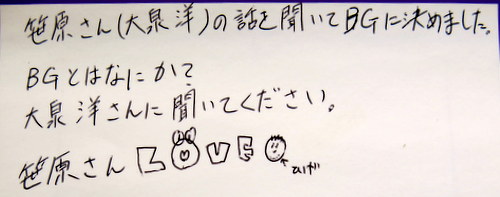 笹原さん(大泉洋)の話を聞いてBGに決めました。
BGとはなにかで
大泉洋さんに聞いてください。
笹原さん LOVE
ひげ